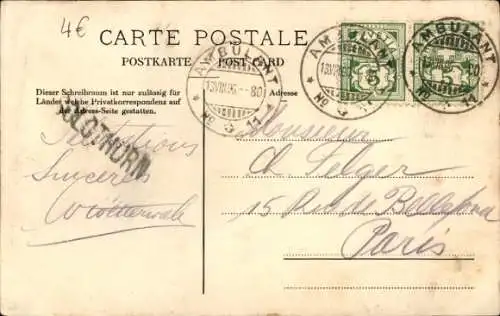 4€
CARTE POSTALE
POSTKARTE
POST CARD
Dieser Schreibraum ist nur zulässig für
Länder welche Privatkorrespondenz auf
der Adress-Seite gestatten.
Adresse
SOLOTHURN
AMBULANT
13VIII06.-80
No 3 11
AMBULANT
No 3 11
AMBULANT
No 3 11
5
5
Sincères
Monsieur
Ch. Selger
15 Rue de
Paris